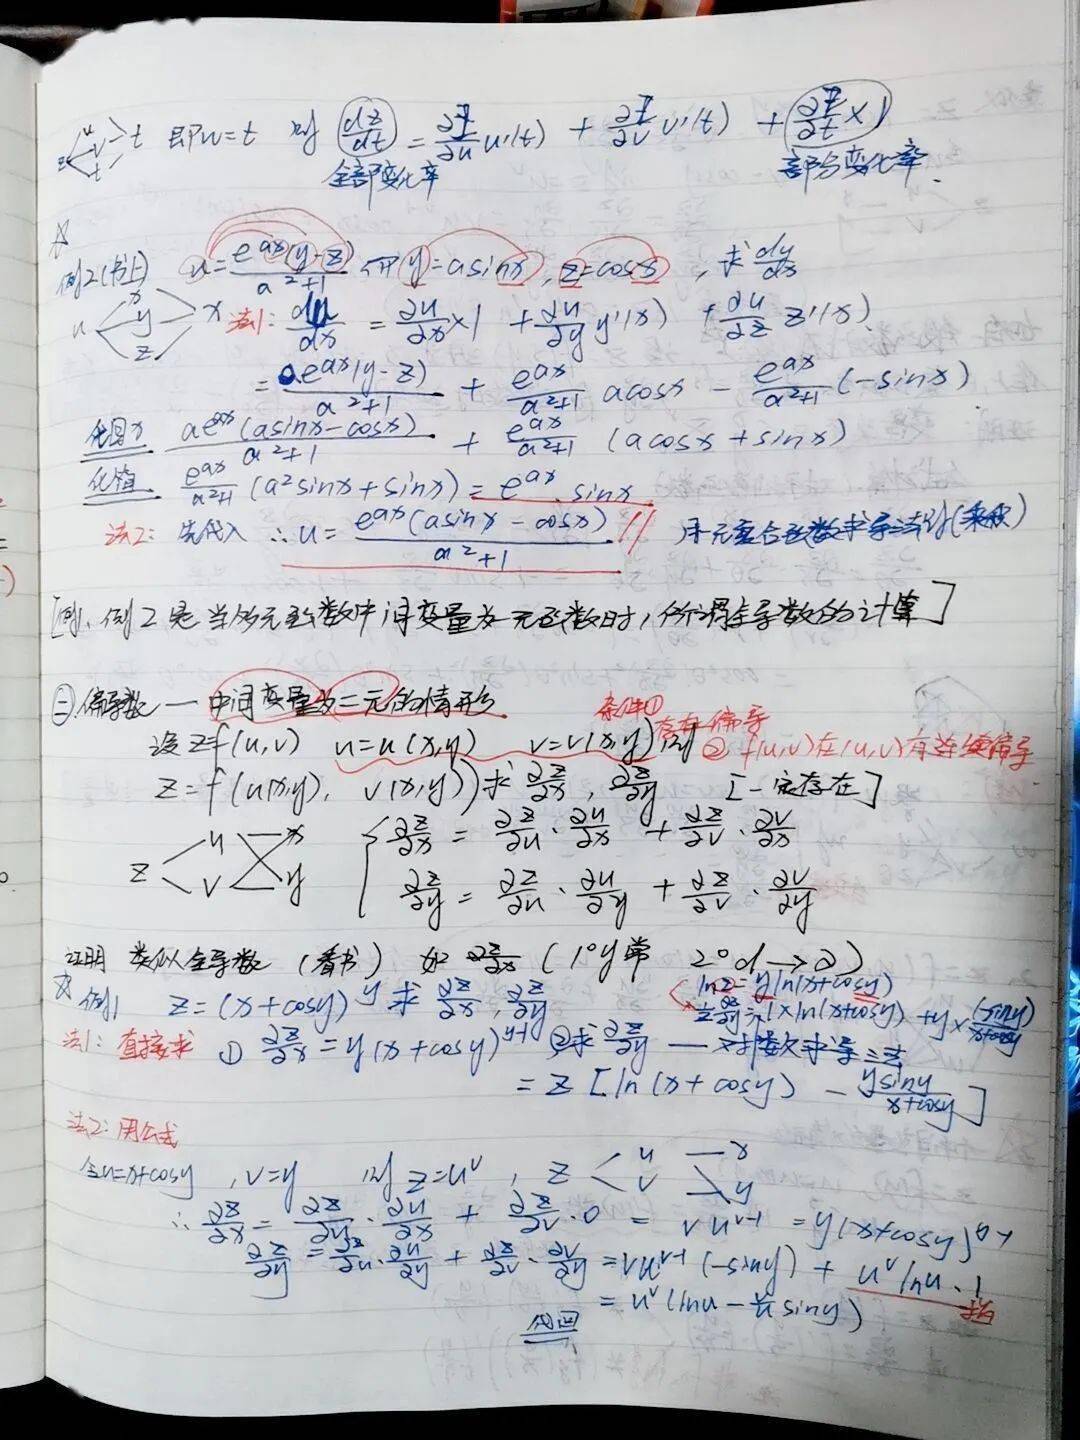 z u v t t 即w=t 则 dz/dt = ∂z/∂u u'(t) + ∂z/∂v v'(t) + ∂z/∂t ×1
全部变化率 部分变化率.
☆
例2(书上) u = e^{ax}(y-z)/(a²+1) 但y=asinx, z=cosx, 求 dy/dx
u x y z x 法1: du/dx = ∂u/∂x ×1 + ∂u/∂y y'(x) + ∂u/∂z z'(x).
= ae^{ax}(y-z)/(a²+1) + e^{ax}/(a²+1) acosx - e^{ax}/(a²+1) (-sinx)
代回x ae^{ax}(asinx-cosx)/(a²+1) + e^{ax}/(a²+1) (acosx+sinx)
化简 e^{ax}/(a²+1) (a²sinx+sinx) = e^{ax}·sinx
法2: 先代入 ∴u = e^{ax}(asinx-cosx)/(a²+1) // 用一元复合函数求导法则(乘积)
[例1、例2是当多元函数中间变量为一元函数时,所谓全导数的计算]
㊁偏导数—中间变量为二元的情形
条件① 存在偏导
设z=f(u,v) u=u(x,y) v=v(x,y),则 ② f(u,v)在(u,v)有连续偏导
z=f(u(x,y), v(x,y)) 求 ∂z/∂x, ∂z/∂y [一定存在]
z u v x y { ∂z/∂x = ∂z/∂u·∂u/∂x + ∂z/∂v·∂v/∂x
∂z/∂y = ∂z/∂u·∂u/∂y + ∂z/∂v·∂v/∂y
证明 类似全导数 (看书) 如 ∂z/∂x (1°y常 2°d→∂)
lnz=yln(x+cosy)
☆例1 z=(x+cosy)^y 求 ∂z/∂x, ∂z/∂y 1/z ∂z/∂y = 1×ln(x+cosy) + y×(-siny)/(x+cosy)
法1: 直接求 ① ∂z/∂x = y(x+cosy)^{y-1} ②求 ∂z/∂y — 对数求导法
= z [ln(x+cosy) - ysiny/(x+cosy)]
法2: 用公式
令u=x+cosy, v=y 则 z=u^v, z u v x y
∴ ∂z/∂x = ∂z/∂u·∂u/∂x + ∂z/∂v·0 = vu^{v-1} = y(x+cosy)^{y-1}
∂z/∂y = ∂z/∂u·∂u/∂y + ∂z/∂v·∂v/∂y = vu^{v-1}(-siny) + u^v lnu·1
= u^v(lnu - v/u siny)
代回